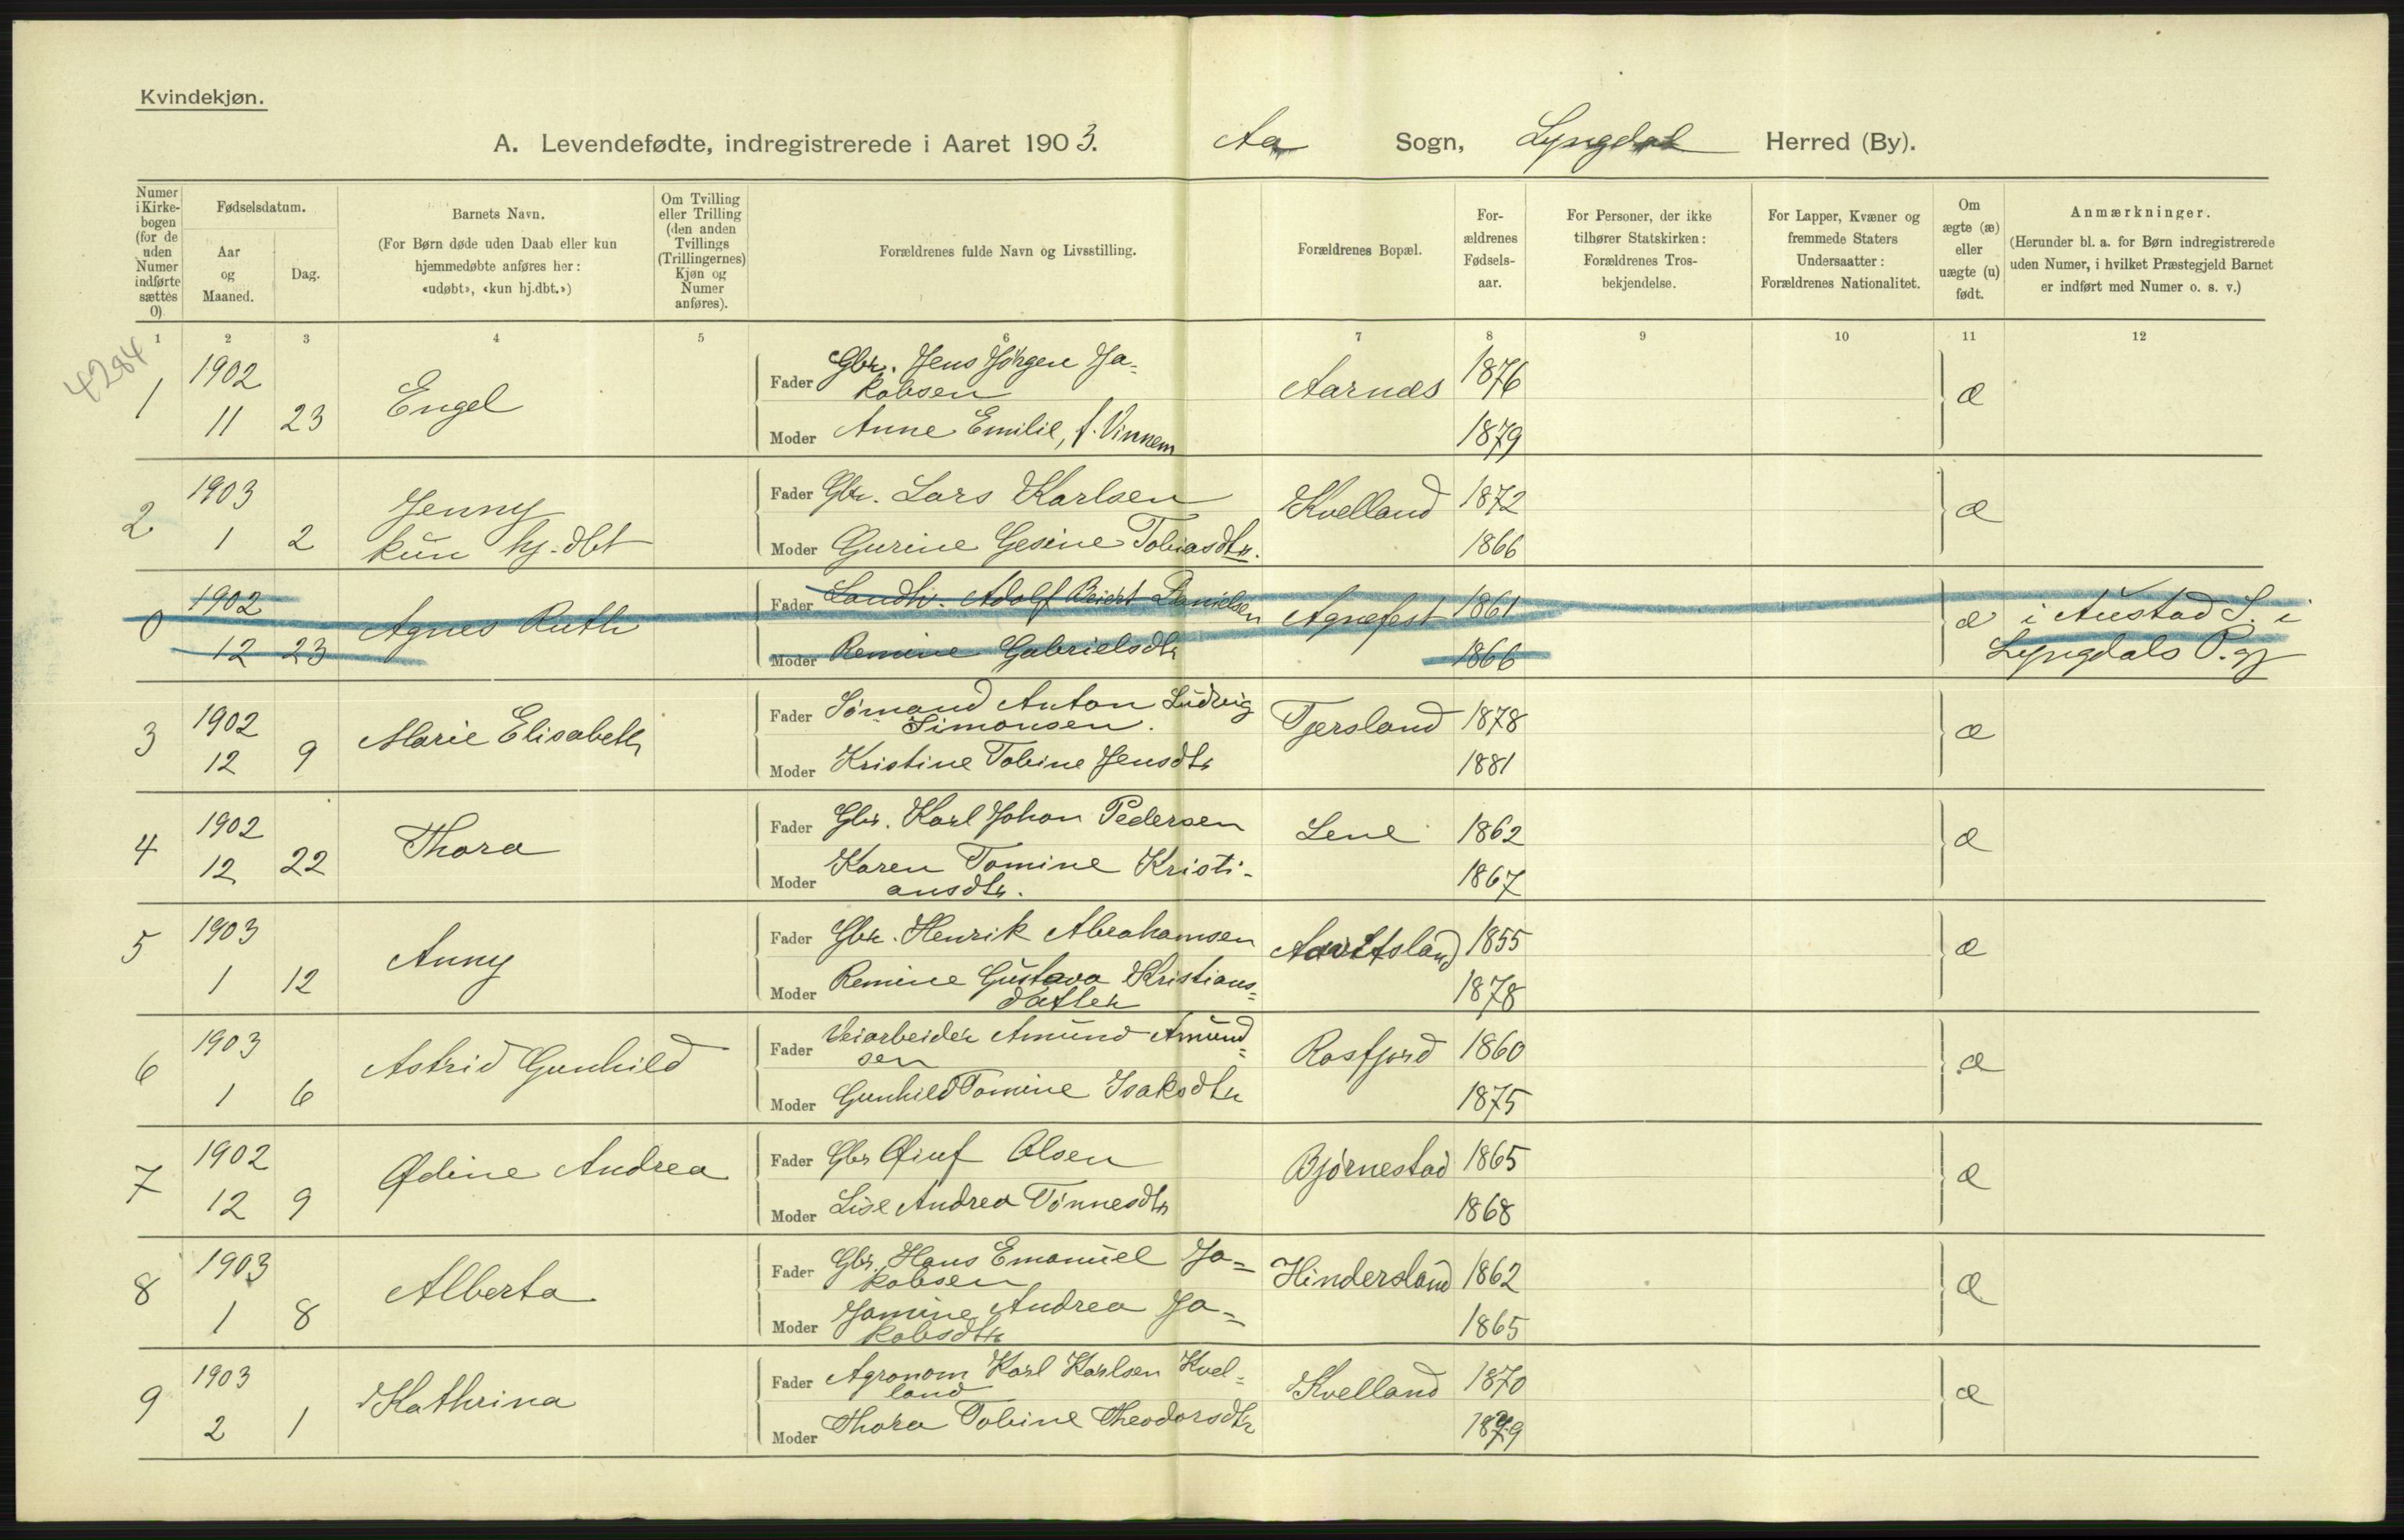 Kvindekjøn.
A. Levendefødte, indregistrerede i Aaret 1903. Aa Sogn, Lyngdal Herred (By).
Numer i Kirkebogen (for de uden Numer indførte sættes 0)
Fødselsdatum.
Aar og Maaned.
Dag.
Barnets Navn.
(For Børn døde uden Daab eller kun
hjemmedøbte anføres her:
«udøbt», «kun hj.dbt.»)
Om Tvilling
eller Trilling
(den anden
Tvillings
(Trillingernes)
Kjøn og
Numer
anføres).
Forældrenes fulde Navn og Livsstilling.
Forældrenes Bopæl.
For-
ældrenes
Fødsels-
aar.
For Personer, der ikke
tilhører Statskirken:
Forældrenes Tros-
bekjendelse.
For Lapper, Kvæner og
fremmede Staters
Undersaatter:
Forældrenes Nationalitet.
Om
ægte (æ)
eller
uægte (u)
født.
Anmærkninger.
(Herunder bl. a. for Børn indregistrerede
uden Numer, i hvilket Præstegjeld Barnet
er indført med Numer o. s. v.)
1 2 3 4 5 6 7 8 9 10 11 12
4284
1 1902 11 23 Engel
Fader Gbr. Jens Jörgen Ja-
kobsen Aarnæs 1876 æ
Moder Anne Emilie, f. Vinnem 1879
2 1903 1 2 Jenny
kun hj. dbt
Fader Gbr. Lars Karlsen Kvelland 1872 æ
Moder Gurine Gesine Tobiasdtr. 1866
0 1902 12 23 Agnes Ruth
Fader Landh. Adolf Beiert Danielsen Agnefest 1861 æ i Austad S. i
Moder Remine Gabrielsdtr 1866 Lyngdals P.gj
3 1902 12 9 Marie Elisabeth
Fader Sömand Anton Ludvig
Simonsen. Tjersland 1878 æ
Moder Kristine Tobine Jensdtr 1881
4 1902 12 22 Thora
Fader Gbr. Karl Johan Pedersen Lene 1862 æ
Moder Karen Tomine Kristi-
ansdtr. 1867
5 1903 1 12 Anny
Fader Gbr. Henrik Abrahamsen 1855 æ
Moder Remine Gustava Kristians=
datter 1878
6 1903 1 6 Astrid Gunhild
Fader Veiarbeider Amund Amund=
sen Rosfjord 1860 æ
Moder Gunhild Tomine Isaksdtr 1875
7 1902 12 9 Ødine Andrea
Fader Gbr Øiuf Olsen Björnestad 1865 æ
Moder Lise Andrea Tönnesdtr 1868
8 1903 1 8 Alberta
Fader Gbr. Hans Emanuel Ja=
kobsen Hindersland 1862 æ
Moder Jamine Andrea Ja=
kobsdtr 1865
9 1903 2 1 Kathrina
Fader Agronom Karl Karlsen Kvel=
land Kvelland 1870 æ
Moder Thora Tobine Theodorsdtr 1879